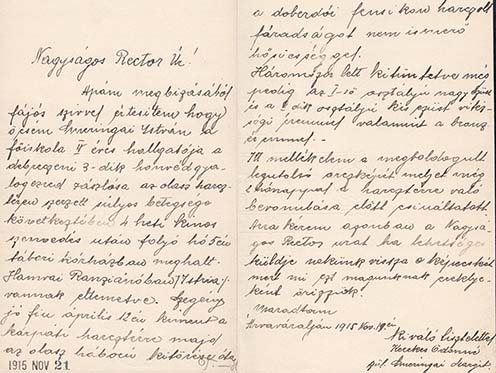 Nagyságos Rector Úr!
Apám megbizásából
fájós szivvel értesitem hogy
öcsém Smeringai István a
főiskola IV éves hallgatója a
debreczeni 3-dik honvédgya-
logezred zászlósa az olasz harcz-
téren szerzett súlyos betegsége
következtében 4 heti kinos
szenvedés után folyó hó 5én
tábori kórházban meghalt.
Hamvai Ranziánóban /Istria/
vannak eltemetve. Szegény
jó fiu április 12én kiment a
kárpáti harcztérre majd
az olasz háború kitörése óta
1915 NOV 21
a doberdói fensikon harczolt
fáradságot nem ismerő
hősiességgel.
Háromszor lett kitüntetve még
pedig az I-ső osztályú nagy ezüst
és a II dik osztályú kis ezüst vitéz-
ségi éremmel valamint a bronz
éremmel.-
Itt mellékelem a megboldogult
legutolsó arczképét melyet még
2 hónappal a harcztérre való
bevonulása előtt csináltatott
Arra kérem azonban a Nagysá-
gos Rector urat ha lehetséges
küldje nekünk vissza a képecskét
mert mi ezt magunknak ereklye-
ként őrizzük.
Maradtam
Árvaváralján 1915 Nov. 19én
Kiváló tisztelettel
Kerekes Ödönné
szül. Smeringai Margit.